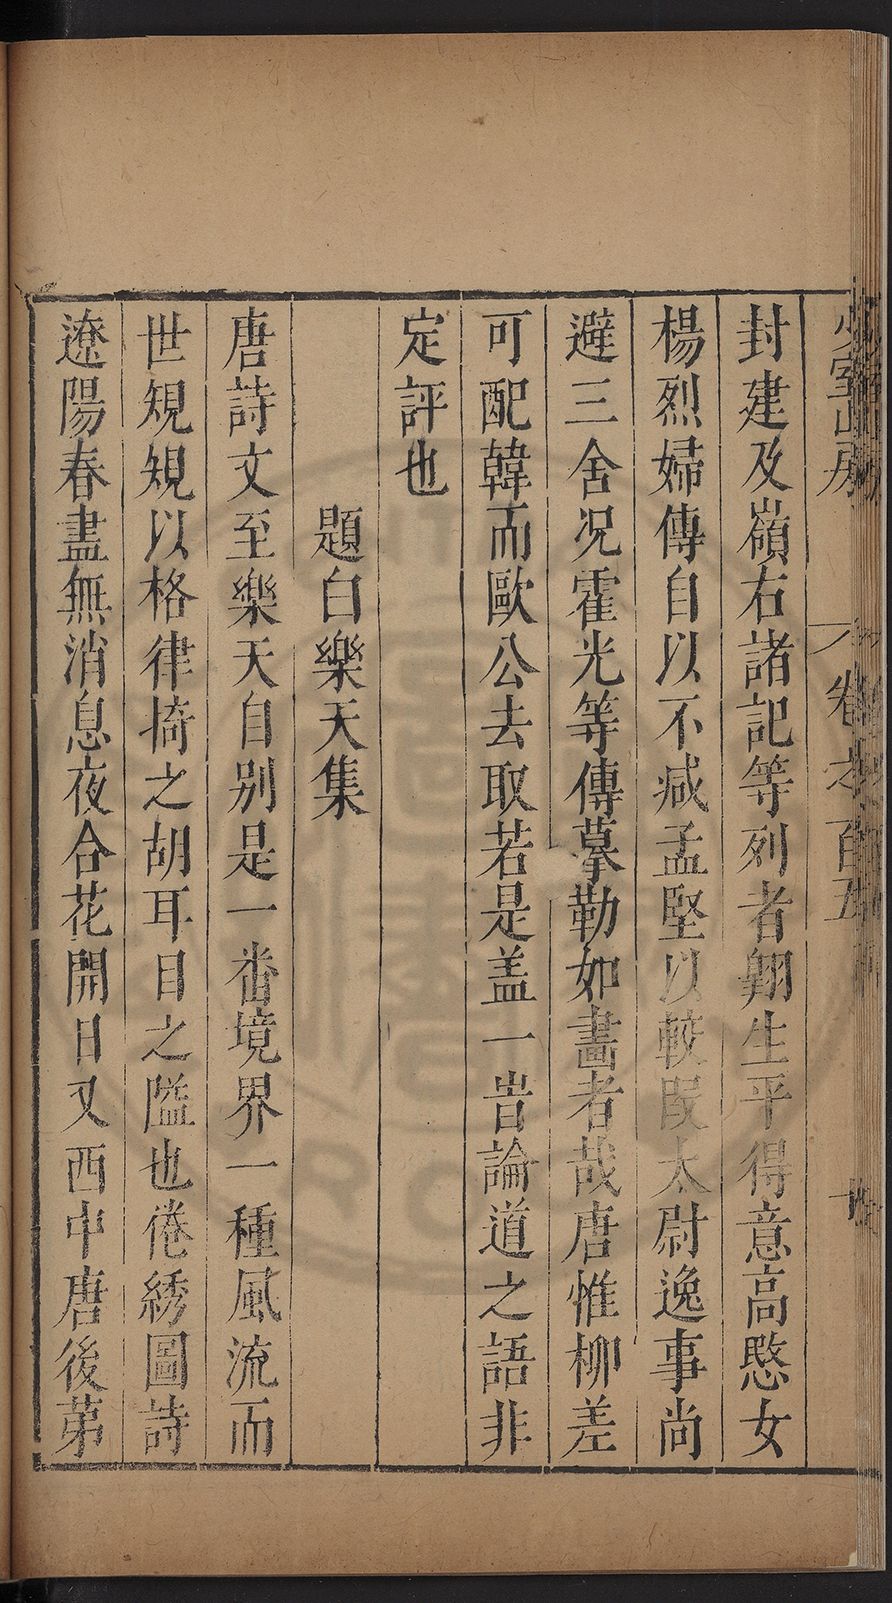 少室山房 卷之一百五
封建及嶺右諸記等列者翺生平得意高愍女
楊烈婦傳自以不减孟堅以較段太尉逸事尚
避三舍况霍光等傳摹勒如畵者哉唐惟柳差
可配韓而歐公去取若是盖一旹論道之語非
定評也
題白樂天集
唐詩文至樂天自别是一畨境界一種風流而
世規規以格律掎之胡耳目之隘也倦綉圖詩
遼陽春盡無消息夜合花開日又西中唐後苐